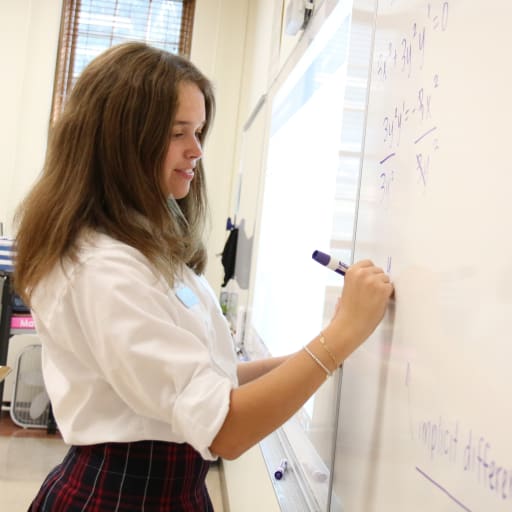 3x² + 3y²y' = 0
3y²y' = -3x²
3y²
implicit differe